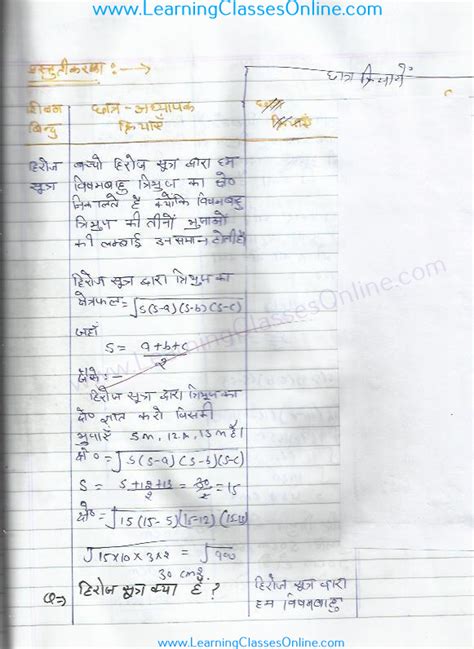 www.LearningClassesOnline.com
प्रस्तुतीकरण :- →
छात्र क्रियायें
शिक्षण बिन्दु
छात्र - अध्यापक क्रियाएँ
छात्र क्रियाएँ
हिरोज सूत्र
बच्चो हिरोज सूत्र द्वारा हम
विषमबाहु त्रिभुज का क्षे०
निकालते है क्योंकि विषमबाहु
त्रिभुज की तीनों भुजाओ
की लम्बाई असमान होती है।
हिरोज सूत्र द्वारा त्रिभुज का
क्षेत्रफल = √s(s-a)(s-b)(s-c)
जहाँ
s = a+b+c/2
जैसे :-
हिरोज सूत्र द्वारा त्रिभुज का
क्षे० ज्ञात करो जिसकी
भुजाएँ 5m, 12m, 13m है।
क्षे० = √s(s-a)(s-b)(s-c)
s = 5+12+13/2 = 30/2 = 15
क्षे० = √15(15-5)(15-12)
√15×10×3×2 = √900
30 cm
Q→ हिरोज सूत्र क्या है ?
हिरोज सूत्र द्वारा
हम विषमबाहु
www.LearningClassesOnline.com
www.LearningClassesOnline.com